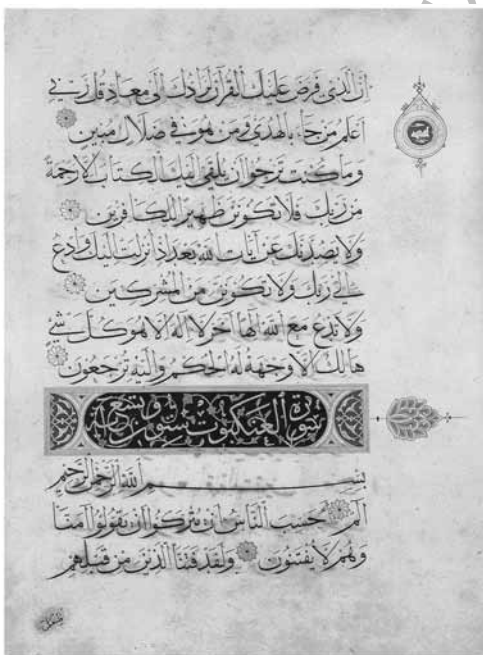 إن الذي فرض عليك القرآن لرادك إلى معاد قل ربي
أعلم من جاء بالهدى ومن هو في ضلال مبين
وما كنت ترجوا أن يلقى إليك الكتاب إلا رحمة
من ربك فلا تكونن ظهيرا للكافرين
ولا يصدنك عن آيات الله بعد إذ أنزلت إليك وادع
إلى ربك ولا تكونن من المشركين
ولا تدع مع الله إلها آخر لا إله إلا هو كل شيء
هالك إلا وجهه له الحكم وإليه ترجعون
سورة العنكبوت ستون وتسع آية
بسم الله الرحمن الرحيم
الم أحسب الناس أن يتركوا أن يقولوا آمنا
وهم لا يفتنون ولقد فتنا الذين من قبلهم